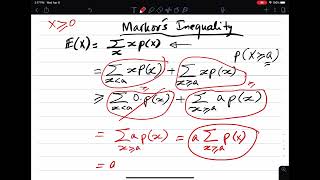 2:17 PM Wed Apr 6
X≥0
Markov's Inequality
E(X) = ∑ₓ x p(x) ←
P(X≥a)
= ∑_{x<a} x p(x) + ∑_{x≥a} x p(x)
≥ ∑_{x<a} 0 p(x) + ∑_{x≥a} a p(x)
= ∑_{x≥a} a p(x) = a ∑_{x≥a} p(x)
= a